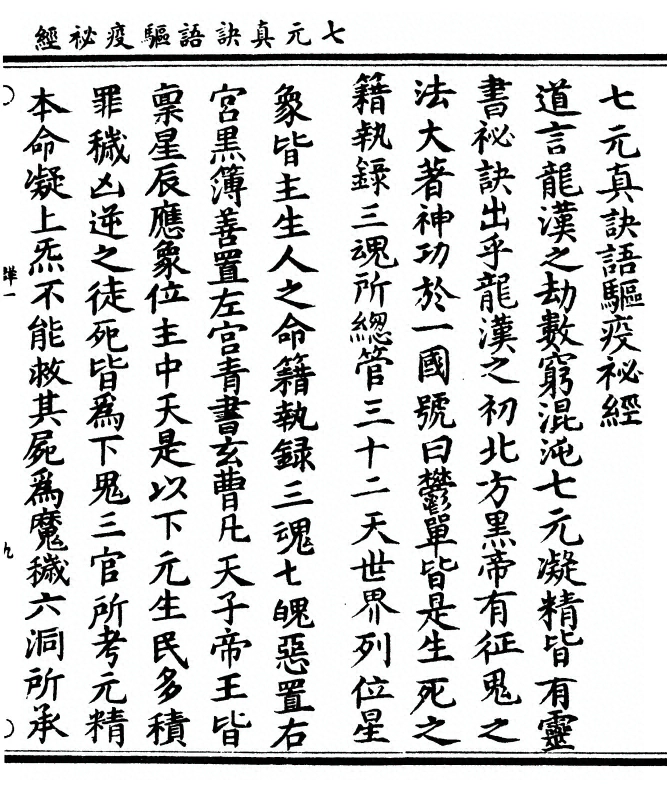 七元真訣語驅疫祕經
七元真訣語驅疫祕經
道言龍漢之劫數窮混沌七元凝精皆有靈
書祕訣出乎龍漢之初北方黑帝有征鬼之
法大著神功於一國號曰鬱單皆是生死之
籍執錄三魂所總管三十二天世界列位星
象皆主生人之命籍執録三魂七魄惡置右
宮黑簿善置左宮青書玄曹凡天子帝王皆
禀星辰應象位主中天是以下元生民多積
罪穢凶逆之徒死皆爲下鬼三官所考元精
本命凝上炁不能救其屍爲魔穢六洞所承
九